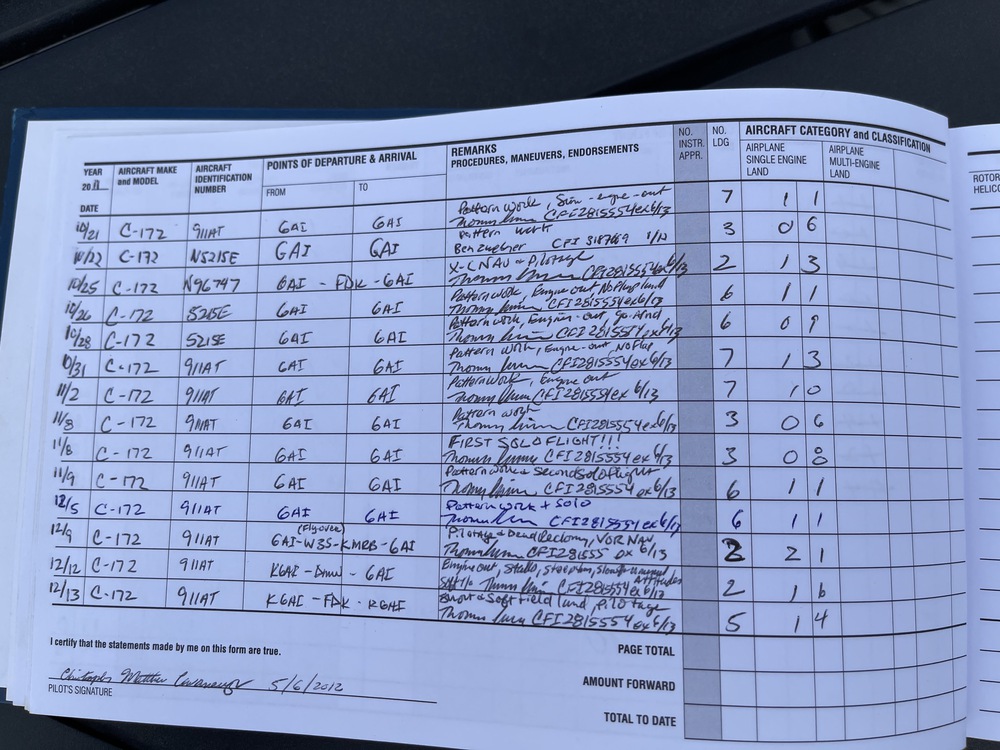 YEAR
20 11
DATE
AIRCRAFT MAKE
and MODEL
AIRCRAFT
IDENTIFICATION
NUMBER
POINTS OF DEPARTURE & ARRIVAL
FROM TO
REMARKS
PROCEDURES, MANEUVERS, ENDORSEMENTS
NO.
INSTR.
APPR.
NO.
LDG
AIRCRAFT CATEGORY and CLASSIFICATION
AIRPLANE
SINGLE ENGINE
LAND
AIRPLANE
MULTI-ENGINE
LAND
ROTOR
HELICO
Pattern work, Sim-engine-out
10/21 C-172 911AT GAI GAI Thomas CFI2815554ex6/13 7 1 1
Pattern work
10/22 C-172 N5215E GAI GAI Ben CFI 3 0 6
X-C NAV & Pilotage
10/25 C-172 N96747 GAI - FDK - GAI Thomas CFI2815554ex6/13 2 1 3
Pattern work, Engine out, No Flap land
10/26 C-172 5215E GAI GAI Thomas CFI2815554ex6/13 6 1 1
Pattern work, Engine-out, Go Arnd
10/28 C-172 5215E GAI GAI Thomas CFI2815554ex6/13 6 0 9
Pattern work, Engine-out, No Flap
10/31 C-172 911AT GAI GAI Thomas CFI2815554ex6/13 7 1 3
Pattern work, Engine out
11/2 C-172 911AT GAI GAI Thomas CFI2815554ex 6/13 7 1 0
Pattern work
11/8 C-172 911AT GAI GAI Thomas CFI2815554ex6/13 3 0 6
FIRST SOLO FLIGHT!!!
11/8 C-172 911AT GAI GAI Thomas CFI2815554ex6/13 3 0 8
Pattern work & Second Solo Flight
11/9 C-172 911AT GAI GAI Thomas CFI2815554ex6/13 6 1 1
Pattern work + Solo
12/5 C-172 911AT GAI GAI Thomas CFI2815554ex6/13 6 1 1
(Flyover) Pilotage & Dead Reckoning, VOR NAV
12/9 C-172 911AT GAI-W35-KMRB-GAI Thomas CFI281555 ex 6/13 2 2 1
Engine out, Stalls, Steep turn, Slow flt Unusual Attitudes
12/12 C-172 911AT KGAI - DMW - GAI Thomas CFI2815554ex6/13 2 1 6
Short & Soft Field land, pilotage
12/13 C-172 911AT KGAI - FDK - KGAI Thomas CFI2815554ex6/13 5 1 4
I certify that the statements made by me on this form are true.
Christopher Matthew Cavanaugh 5/6/2012
PILOT'S SIGNATURE
PAGE TOTAL
AMOUNT FORWARD
TOTAL TO DATE